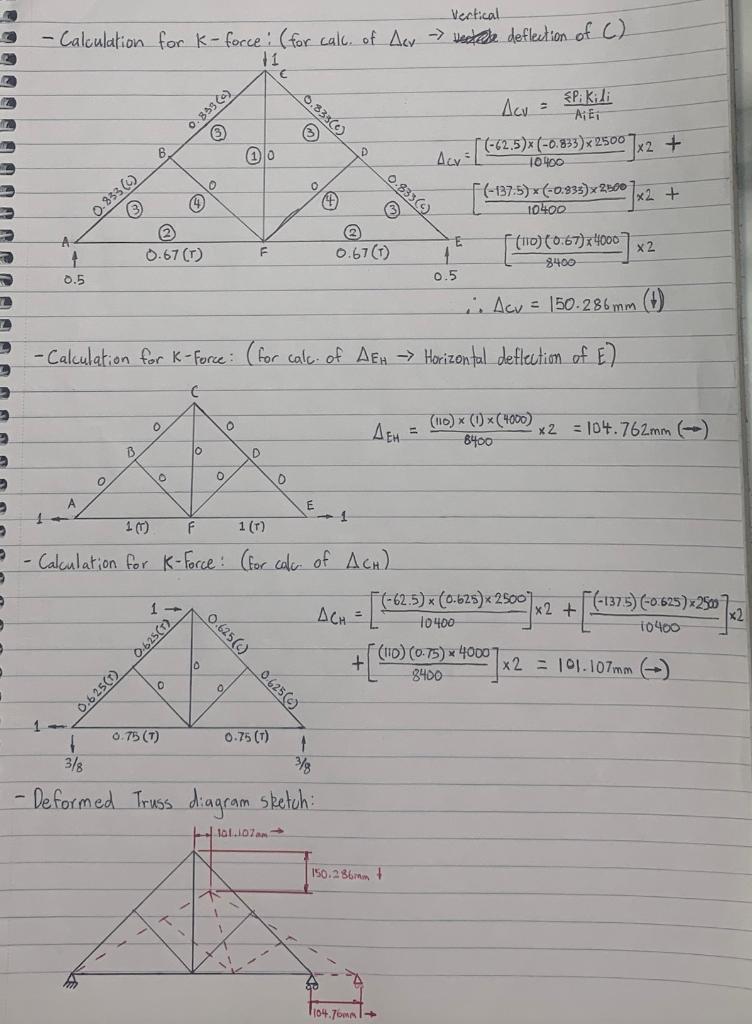 Vertical
- Calculation for K-force: (for calc. of Δcv → deflection of C)
↓1
C
0.833(C) 0.833(C)
③ ③
B ① 0 D
0.833(C) 0 0 0.833(C)
③ ④ ④ ③
② ②
A 0.67(T) F 0.67(T) E
0.5 0.5
Δcv = ΣPiKili / AiEi
Δcv = [(-62.5)×(-0.833)×2500 / 10400]×2 +
[(-137.5)×(-0.833)×2500 / 10400]×2 +
[(110)(0.67)×4000 / 8400]×2
∴ Δcv = 150.286mm (↓)
- Calculation for K-Force: (for calc. of ΔEH → Horizontal deflection of E)
C
0 0
B 0 D
0 0 0 0
A E
1 ← → 1
1(T) F 1(T)
ΔEH = (110)×(1)×(4000) / 8400 ×2 = 104.762mm (→)
- Calculation for K-Force: (for calc. of ΔCH)
1 →
0.625(T) 0.625(C)
0
0.625(T) 0 0 0.625(C)
1 ←
0.75(T) 0.75(T)
3/8 3/8
ΔCH = [(-62.5)×(0.625)×2500 / 10400]×2 + [(-137.5)(-0.625)×2500 / 10400]×2
+ [(110)(0.75)×4000 / 8400]×2 = 101.107mm (→)
- Deformed Truss diagram sketch:
101.107mm →
150.286mm ↓
104.76mm →